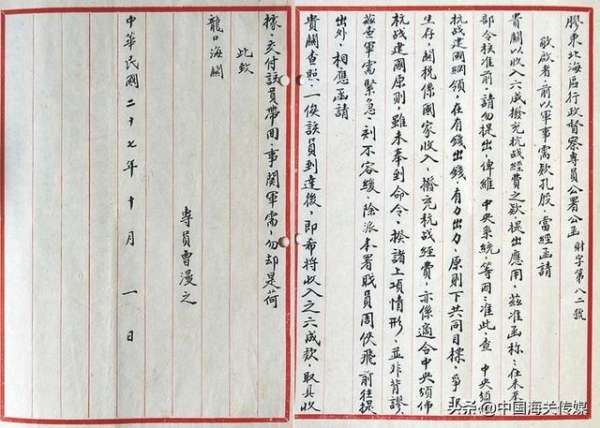 膠東北海區行政督察專員公署公函 財字第八二號
敬啟者前以軍事需款孔殷,當經函請
貴關以收入六成撥充抗战經費之欵,提出應用,茲准函称:在未奉
部令核准前,請勿提出,俾維 中央系統,等因:准此,查 中央頒
抗战建國綱領,在有錢出錢,有力出力,原則下共同目標,爭取
生存,関税係國家收入,撥充抗战經費,亦係適合中央頒佈
抗战建國原則,雖未奉到命令,揆諸上項情形,並非背謬,
茲查軍需緊急,刻不容緩,除派本署職員周俠飛前往提
出外,相應函請
貴関查照,一俟該員到達後,即希將收入之六成款,取具收
據,交付該員帶回,事関軍需,勿却是荷
此致
龍口海關
專員曹漫之
中華民國二十七年十月一日
头条@中国海关传媒